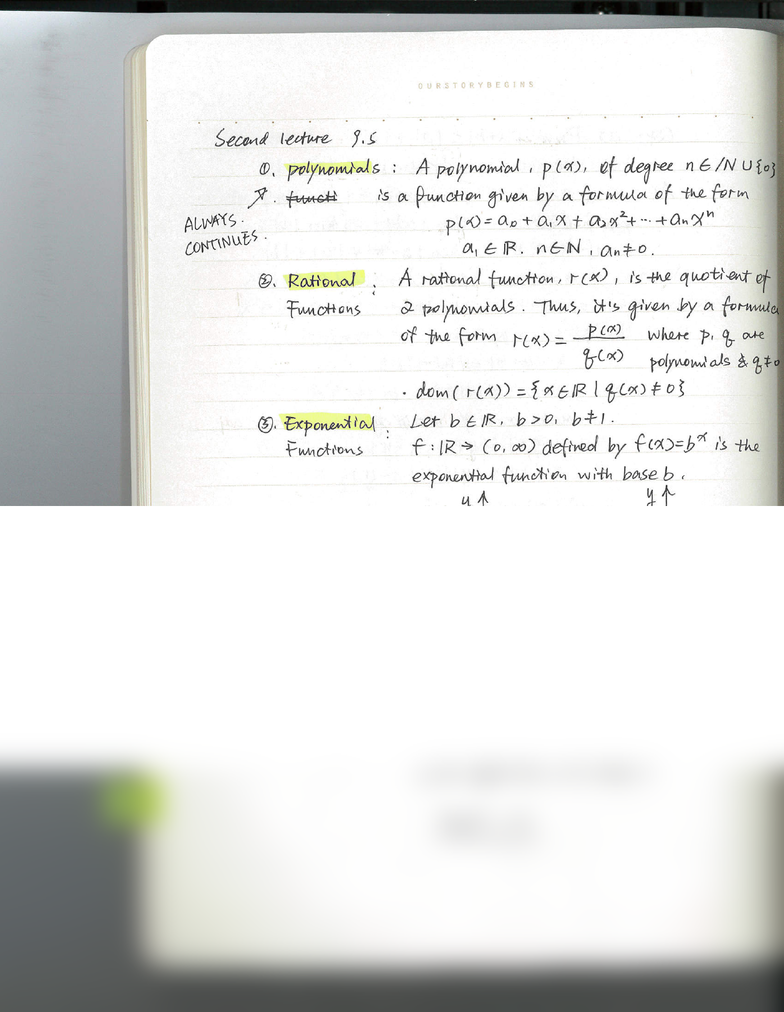 OURSTORYBEGINS
Second lecture 9.5
①. polynomials : A polynomial, p(x), of degree n ∈ ℕ ∪ {0}
functi is a function given by a formula of the form
ALWAYS.
CONTINUES.
p(x) = a₀ + a₁x + a₂x² + ... + aₙxⁿ
a₁ ∈ ℝ. n ∈ ℕ, aₙ ≠ 0.
②. Rational Functions : A rational function, r(x), is the quotient of
2 polynomials. Thus, it's given by a formula
of the form r(x) = p(x)/q(x) where p, q are
polynomials & q ≠ 0
· dom(r(x)) = {x ∈ ℝ | q(x) ≠ 0}
③. Exponential Functions : Let b ∈ ℝ, b > 0, b ≠ 1.
f : ℝ → (0, ∞) defined by f(x) = bˣ is the
exponential function with base b.
y y